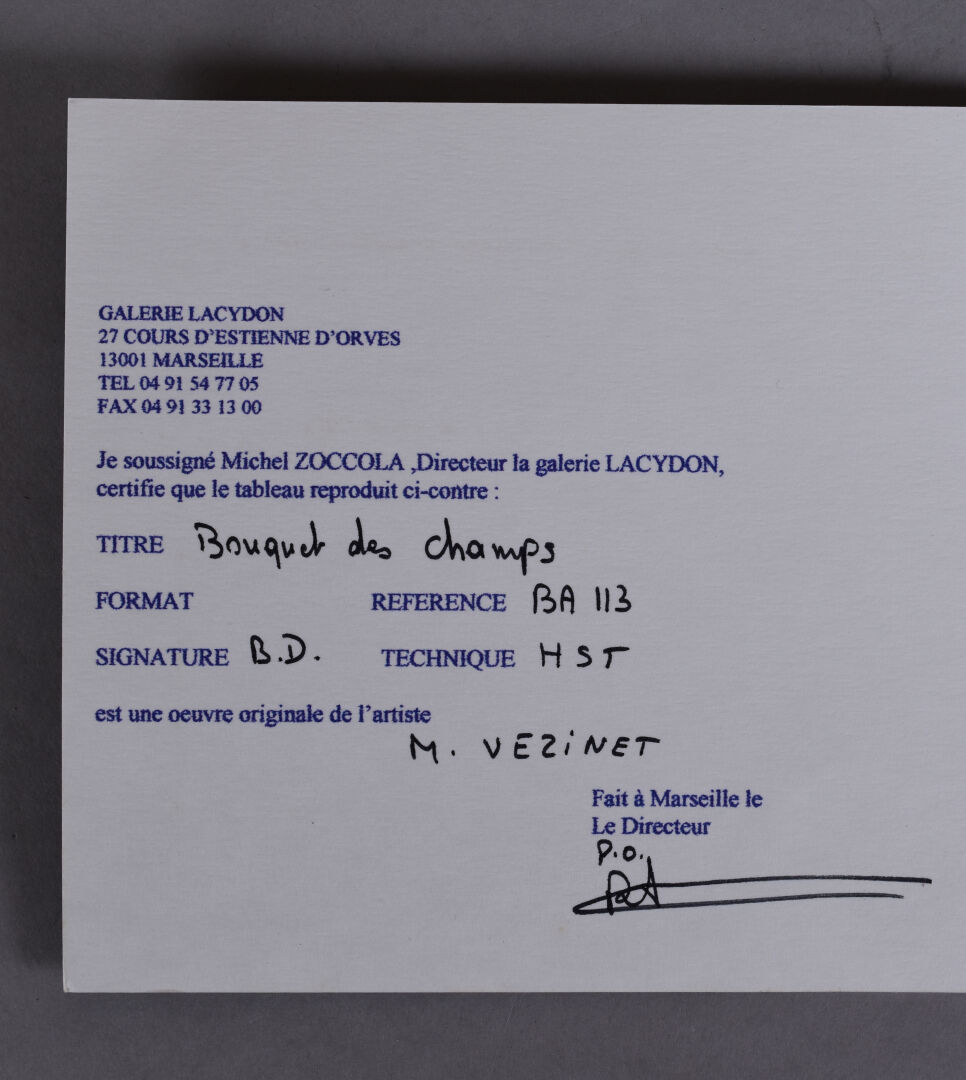 GALERIE LACYDON
27 COURS D'ESTIENNE D'ORVES
13001 MARSEILLE
TEL 04 91 54 77 05
FAX 04 91 33 13 00
Je soussigné Michel ZOCCOLA ,Directeur la galerie LACYDON,
certifie que le tableau reproduit ci-contre :
TITRE Bouquet des champs
FORMAT REFERENCE BA 113
SIGNATURE B.D. TECHNIQUE HST
est une oeuvre originale de l'artiste
M. VEZiNET
Fait à Marseille le
Le Directeur
P.O.